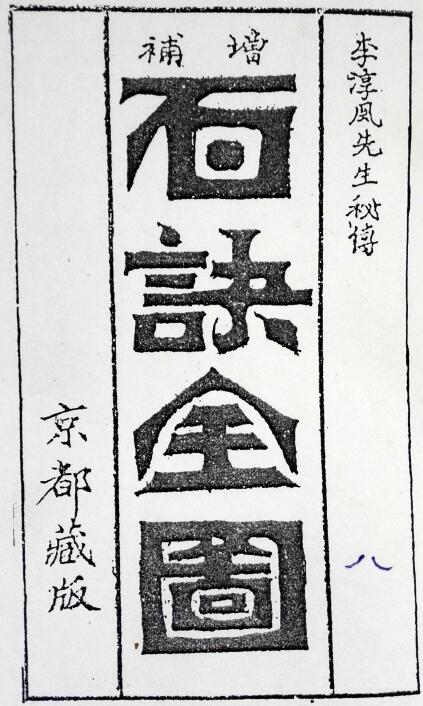 李淳風先生秘傳
八
增補
石訣全圖
京都藏版